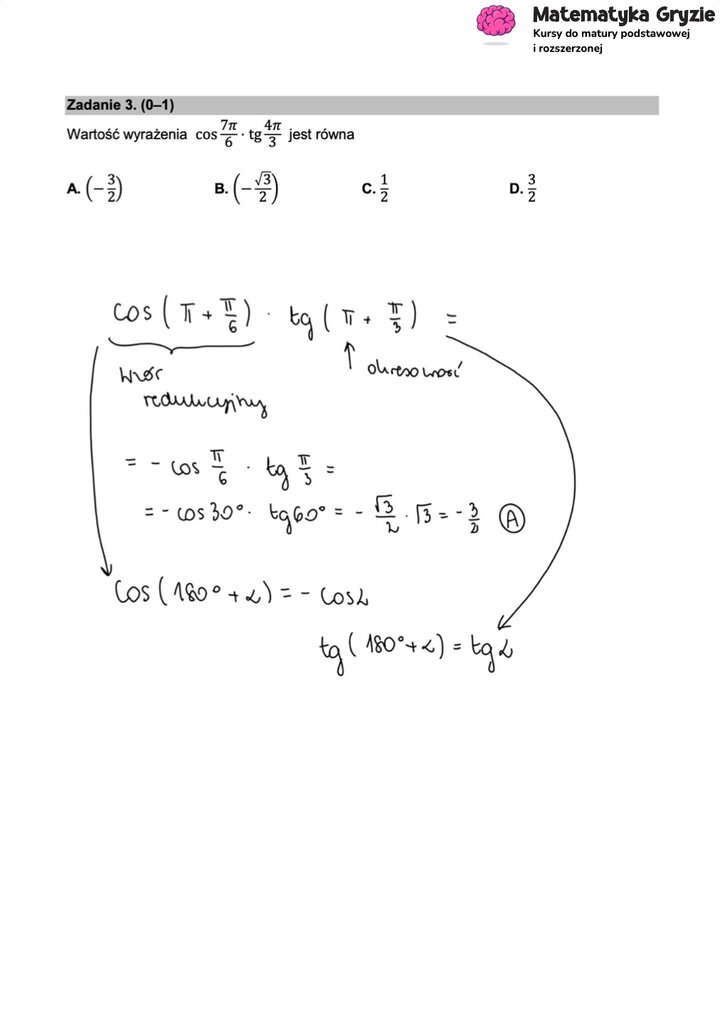 Matematyka Gryzie
Kursy do matury podstawowej
i rozszerzonej
Zadanie 3. (0–1)
Wartość wyrażenia cos 7π/6 · tg 4π/3 jest równa
A. (−3/2) B. (−√3/2) C. 1/2 D. 3/2
cos (π + π/6) · tg (π + π/3) =
wzór
redukcyjny
okresowość
= - cos π/6 · tg π/3 =
= - cos 30° · tg 60° = - √3/2 · √3 = - 3/2 A
cos (180° + α) = - cos α
tg (180° + α) = tg α